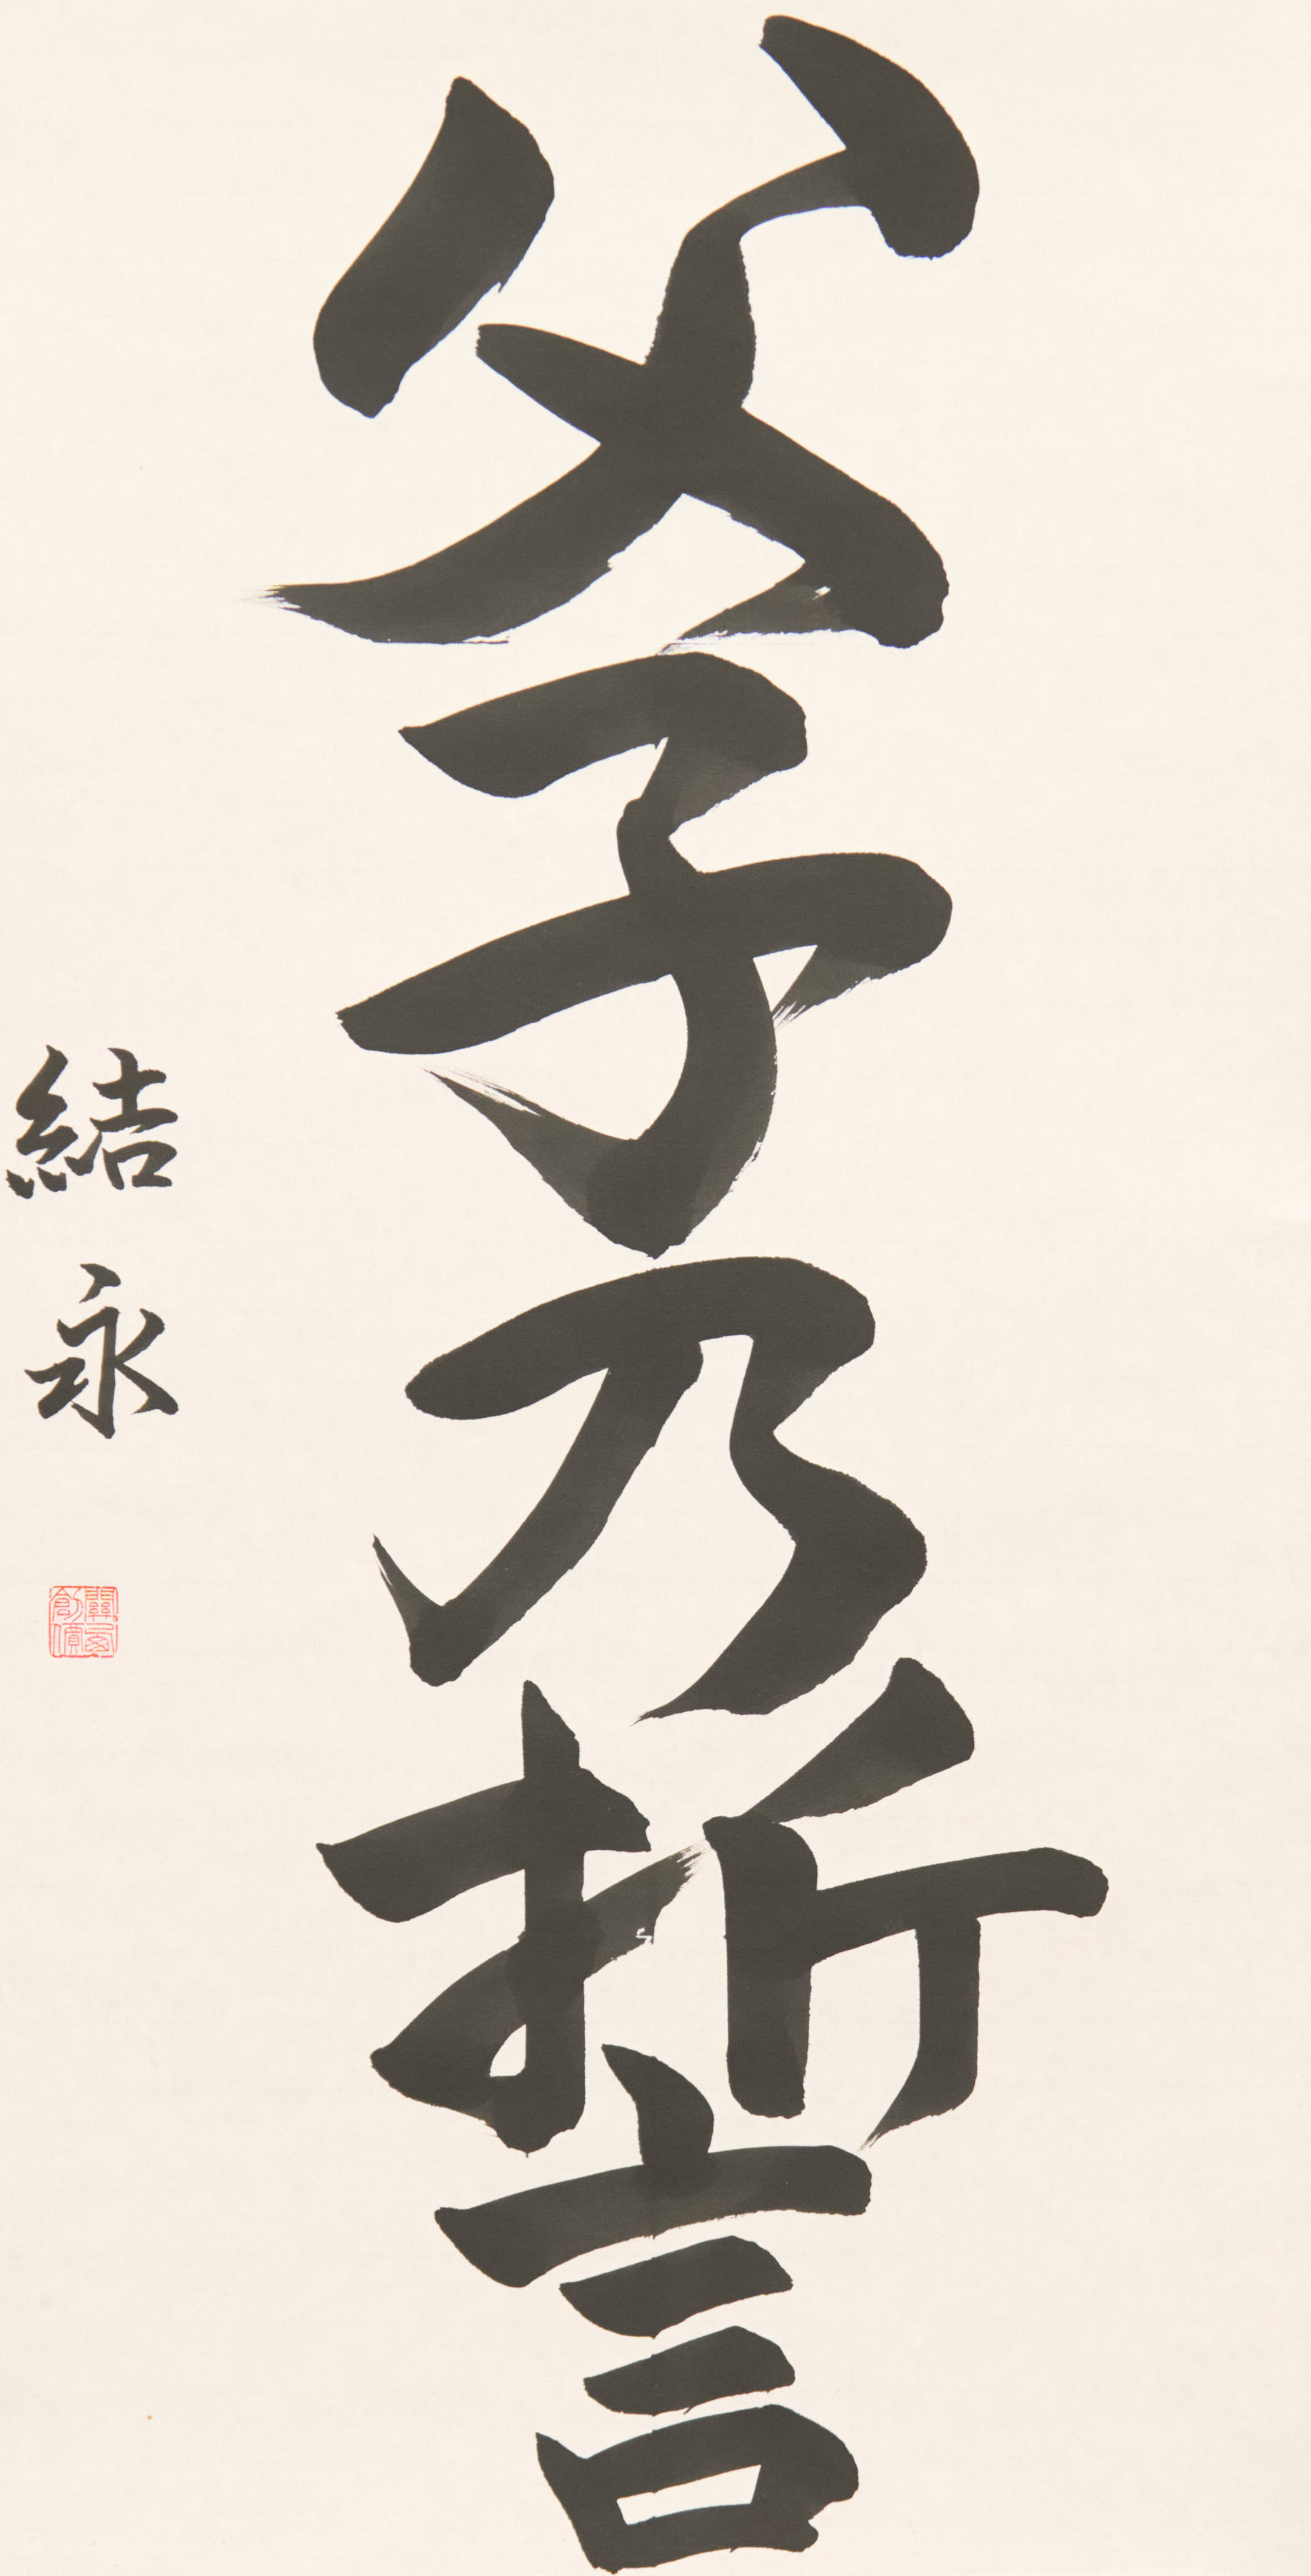 父子乃誓
結永